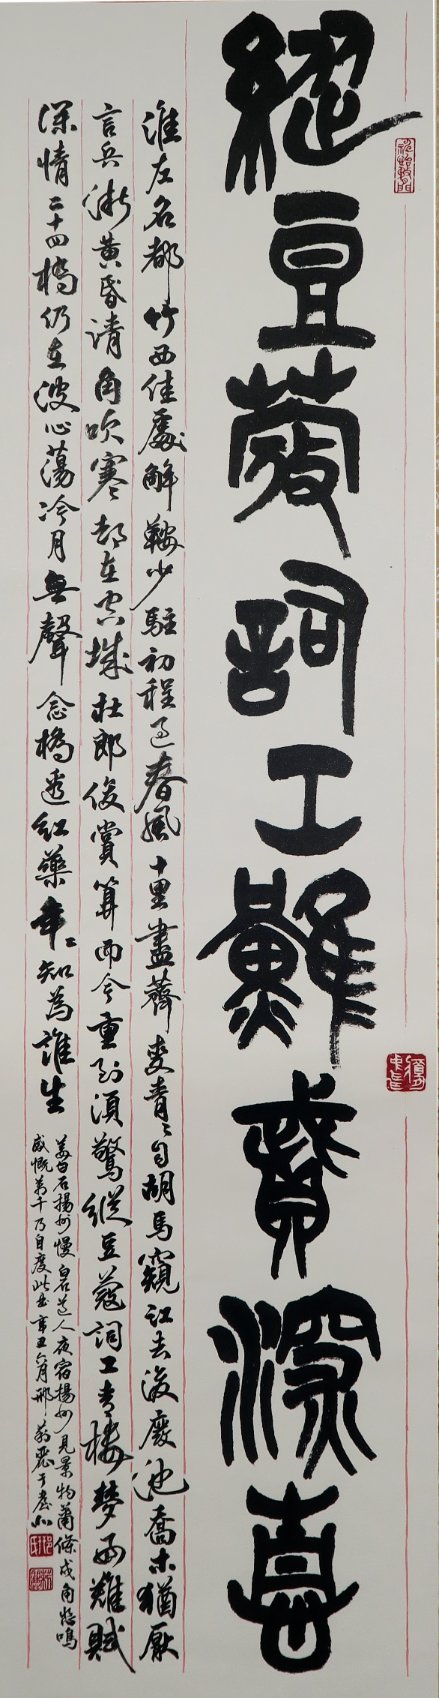 縱豆蔻詞工難賦深意
淮左名都竹西佳處解鞍少駐初程過春風十里盡薺麥青々自胡馬窺江去後廢池喬木猶厭
言兵漸黃昏清角吹寒都在空城杜郎俊賞算而今重到須驚縱豆蔻詞工青樓夢好難賦
深情二十四橋仍在波心蕩冷月無聲念橋邊紅藥年々知為誰生
姜白石揚州慢白石道人夜宿揚州見景物蕭條戍角悲鳴
感慨萬千乃自度此曲辛丑月邢于臺北